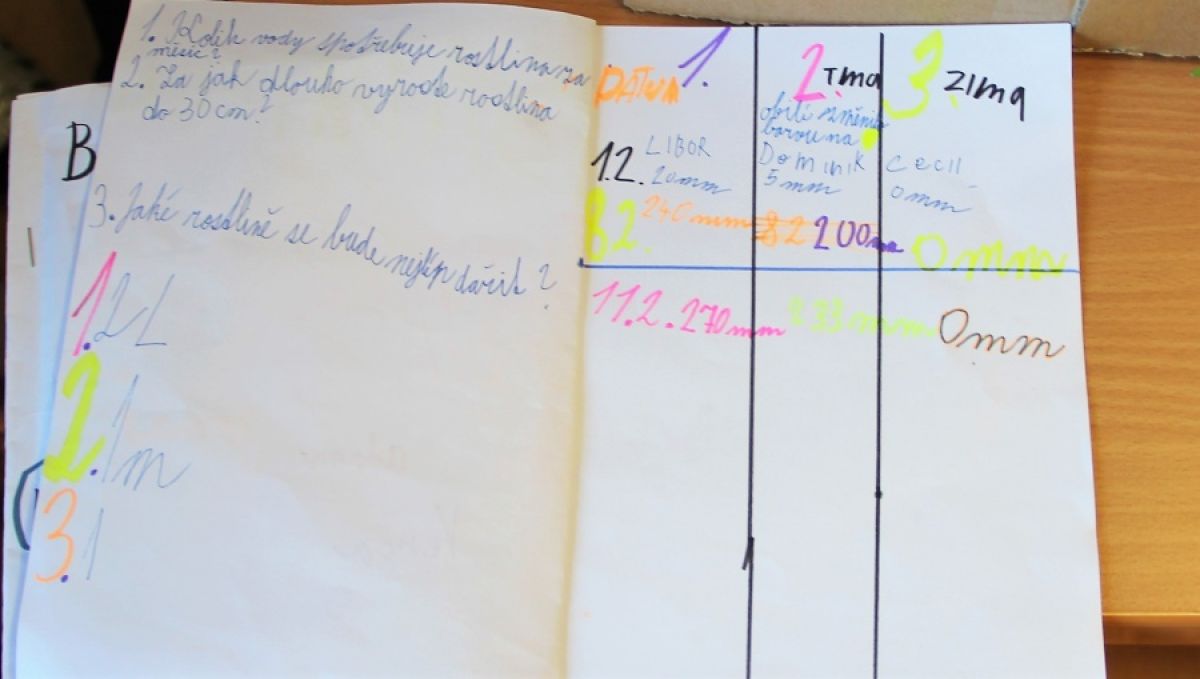 1. Kolik vody spotřebuje rostlina za
měsíc?
2. Za jak dlouho vyroste rostlina
do 30 cm?
B
3. Jaké rostlině se bude nejlíp dařit?
1. 2 L
2. 1 m
3. 1
DATUM 1. 2. TMA 3. ZIMA
obilí změnilo
barvu na
1.2. LIBOR Dominik Cecil
20mm 5 mm 0 mm
8 2. 240 mm 82 200mm 0 mm
11.2. 270 mm 233 mm 0 mm